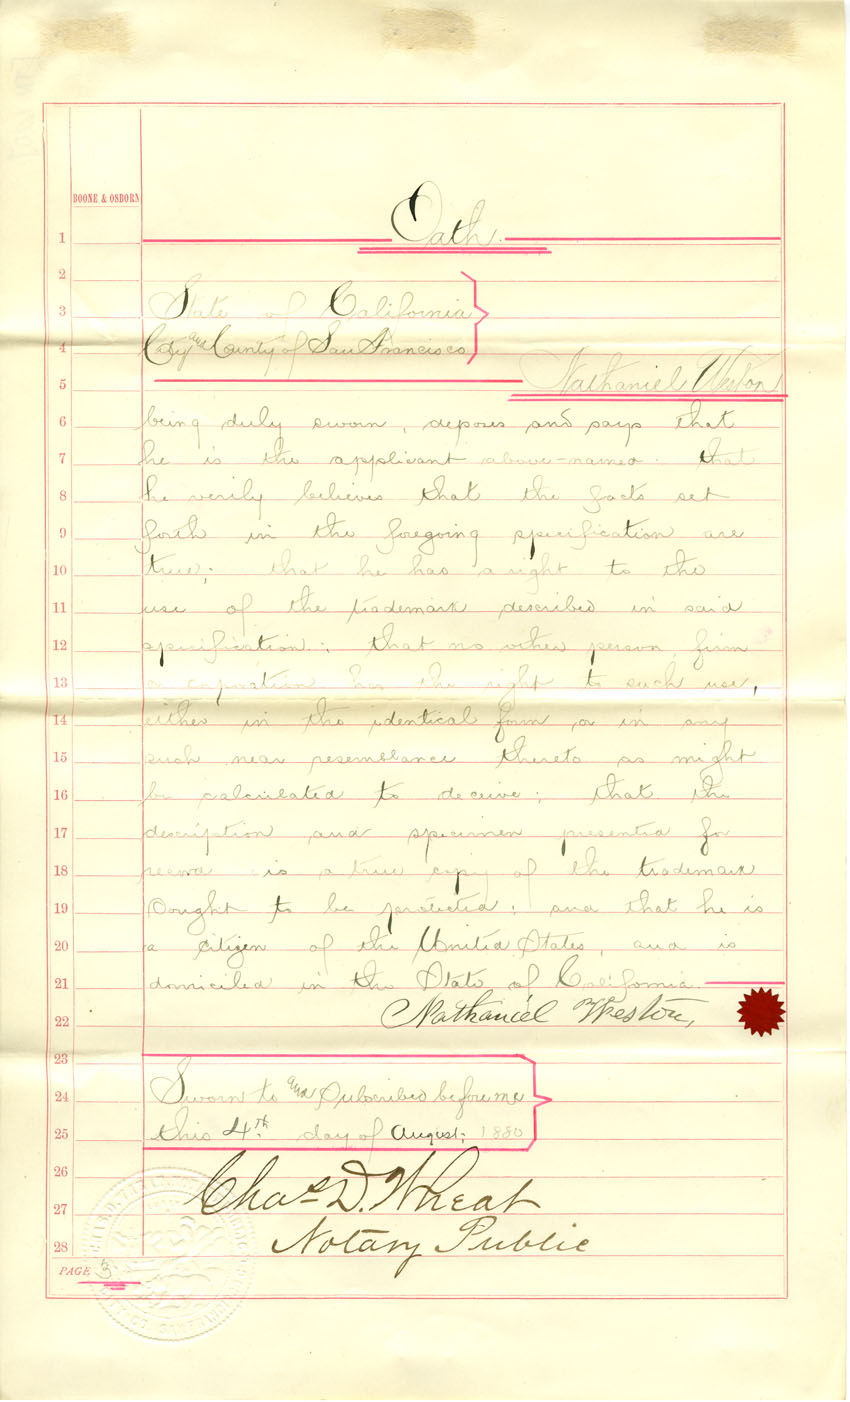 BOONE & OSBORN
1 Oath.
2
3 State of California
4 City and County of San Francisco
5 Nathaniel Weston
6 being duly sworn, deposes and says that
7 he is the applicant above-named. that
8 he verily believes that the facts set
9 forth in the foregoing specification are
10 true; that he has a right to the
11 use of the trademark described in said
12 specification; that no other person, firm
13 or corporation has the right to such use,
14 either in the identical form, or in any
15 such near resemblance thereto as might
16 be calculated to deceive; that the
17 description and specimen presented for
18 record is a true copy of the trademark
19 sought to be protected; and that he is
20 a citizen of the United States, and is
21 domiciled in the State of California.
22 Nathaniel Weston,
23
24 Sworn to and Subscribed before me
25 this 4th. day of August, 1880
26 Chas D. Wheat
27
28 Notary Public
PAGE 3